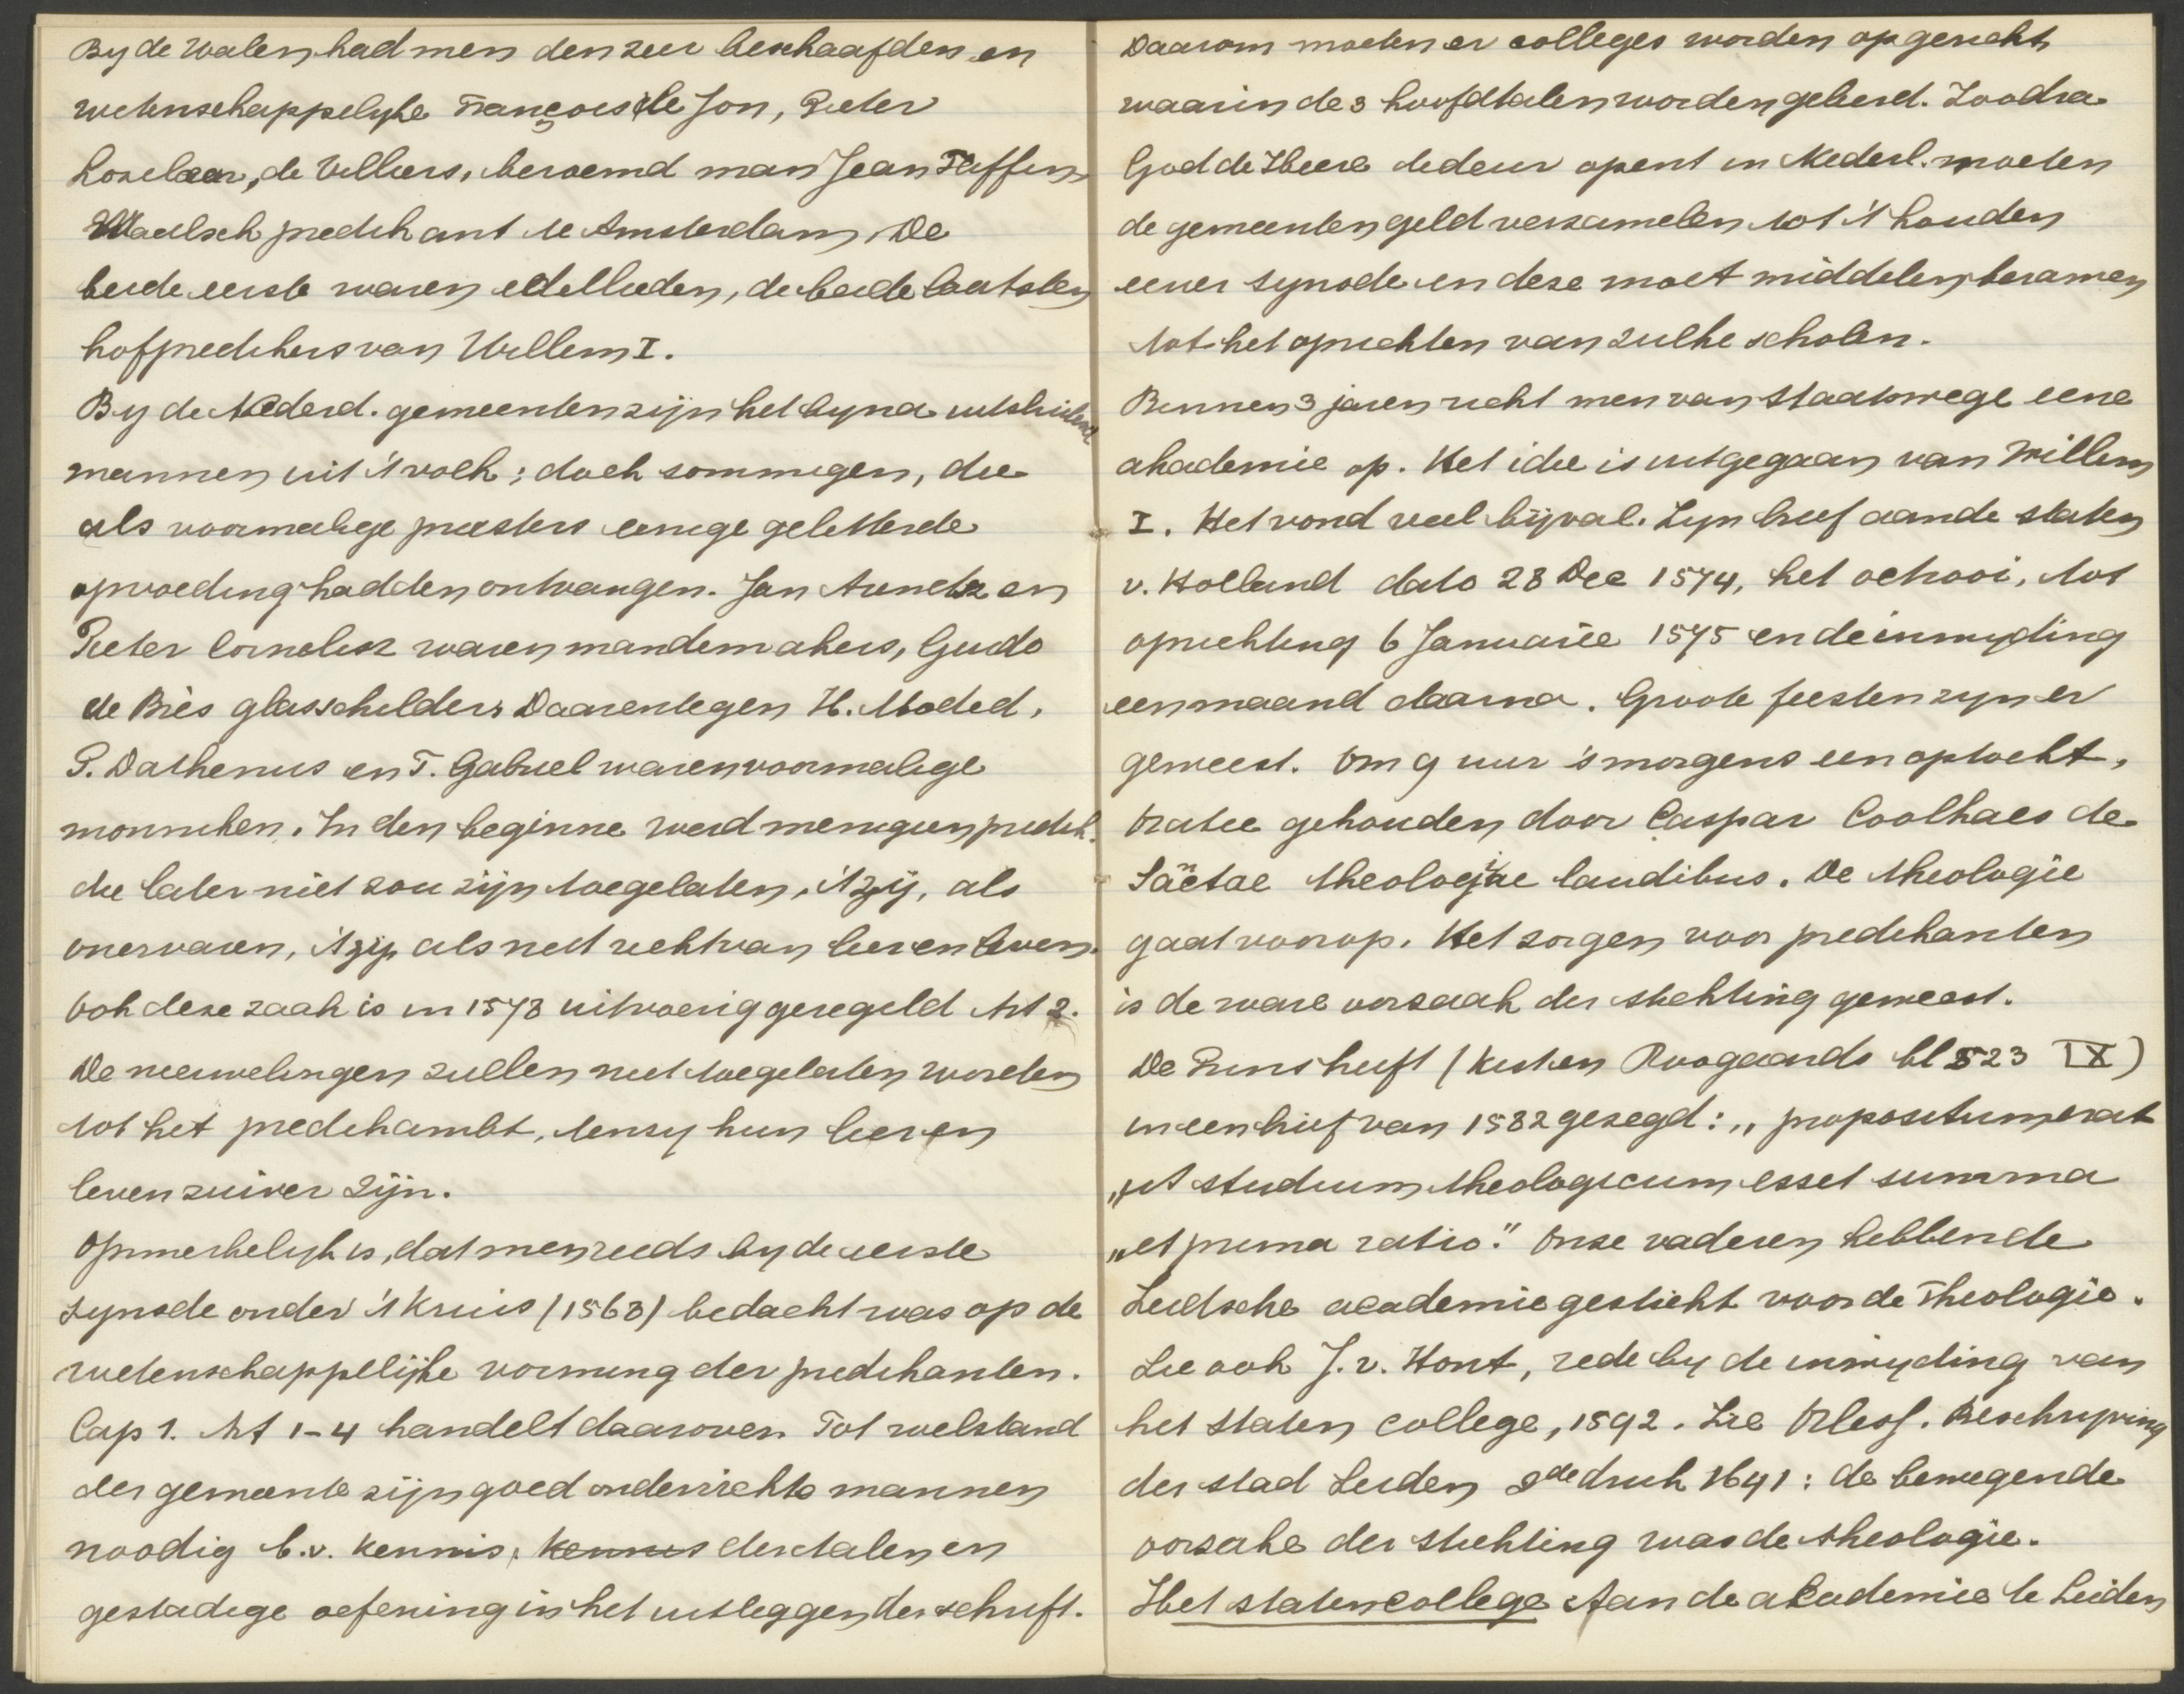 By de Walen had men den zeer beschaafden en
wetenschappelyke François de Jon, Pieter
Loselaer, de Villiers, beroemd man Jean Taffin,
Waalsch predikant te Amsterdam. De
beide eerste waren edellieden, de beide laatsten
hofpredikers van Willem I.
By de Nederd. gemeenten zijn het byna uitsluitend
mannen uit 't volk; doch sommigen, die
als voormalige priesters eenige geletterde
opvoeding hadden ontvangen. Jan Arendsz en
Pieter Cornelisz waren mandemakers, Guido
de Brès glasschilder. Daarentegen H. Moded,
P. Dathenus en T. Gabriel waren voormalige
monniken. In den beginne werd menigeen predik.
die later niet zou zijn toegelaten, 't zij, als
onervaren, 't zij, als niet recht van leer en leven.
Ook deze zaak is in 1578 uitvoerig geregeld Art 2.
De nieuwelingen zullen niet toegelaten worden
tot het predikambt, tenzy hun leer en
leven zuiver zijn.
Opmerkelyk is, dat men reeds by de eerste
synode onder 't Kruis (1568) bedacht was op de
wetenschappelijke vorming der predikanten.
Cap 1. Art 1-4 handelt daarover. Tot welstand
der gemeente zijn goed onderrichte mannen
noodig b.v. kennis, kennis der talen en
gestadige oefening in het uitleggen der schrift.
Daarom moeten er colleges worden opgericht
waarin de 3 hoofdtalen worden geleerd. Zoodra
God de Heere de deur opent in Nederl. moeten
de gemeenten geld verzamelen tot 't houden
eener synode en deze moet middelen beramen
tot het oprichten van zulke scholen.
Binnen 3 jaren richt men van staatswege eene
akademie op. Het idee is uitgegaan van Willem
I. Het vond veel bijval. Zyn brief aan de staten
v. Holland dato 28 Dec 1574, het octrooi, tot
oprichting 6 Januarie 1575 en de inwyding
een maand daarna. Groote feesten zyn er
geweest. Om 9 uur 's morgens een optocht,
Oratie gehouden door Caspar Coolhaes de
Säctae theologiae laudibus. De theologie
gaat voorop. Het zorgen voor predikanten
is de ware oorzaak der stichting geweest.
De Prins heeft (Kist en Rooyaards bl 523 IX)
in een brief van 1582 gezegd: „propositum erat
„ut studium theologicum esset summa
„et prima ratio." Onze vaderen hebben de
Leidsche academie gesticht voor de Theologie.
Zie ook J. v. Hout, rede by de inwyding van
het Staten college, 1592. Zie Orlers. Beschryving
der stad Leiden 2de druk 1641: de bewegende
oorzake der stichting was de theologie.
Het statencollege Aan de akademie te Leiden